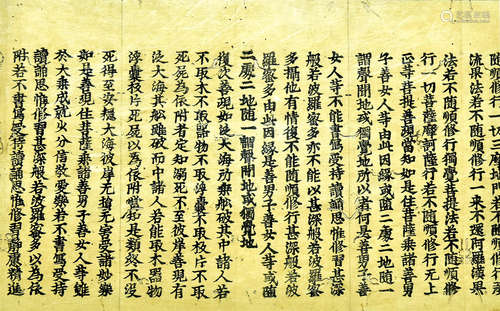 隨順修行一一三摩地
流果法若不隨順修行一來不還阿羅漢果
法若不隨順修行獨覺菩提法若不隨順修
行一切菩薩摩訶薩行若不隨順修行无上
正等菩提善現當知如是住菩薩乘諸善男
子善女人等由此因緣或隨二處二地隨一
謂聲聞地或獨覺地所以者何是善男子善
女人等不能書寫受持讀誦思惟修習甚深
般若波羅蜜多亦不能以甚深般若波羅蜜
多攝他有情復不能隨順修行甚深般若波
羅蜜多由此因緣是善男子善女人等或隨
二處二地隨一謂聲聞地或獨覺地
復次善現如泛大海所乘舩破其中諸人若
不取木不取器物不取浮囊不取板片不取
死屍為依附者定知溺死不至彼岸善現有
泛大海其舩雖破而中諸人若能取木器物
浮囊板片死屍以為依附當知是類終不沒
死得至安隱大海彼岸无損无害受諸妙樂
如是善現住菩薩乘諸善男子善女人等雖
於大乘成就少分信敬愛樂若不書寫受持
讀誦思惟修習甚深般若波羅蜜多以為依
附若不書寫受持讀誦思惟修習靜慮精進